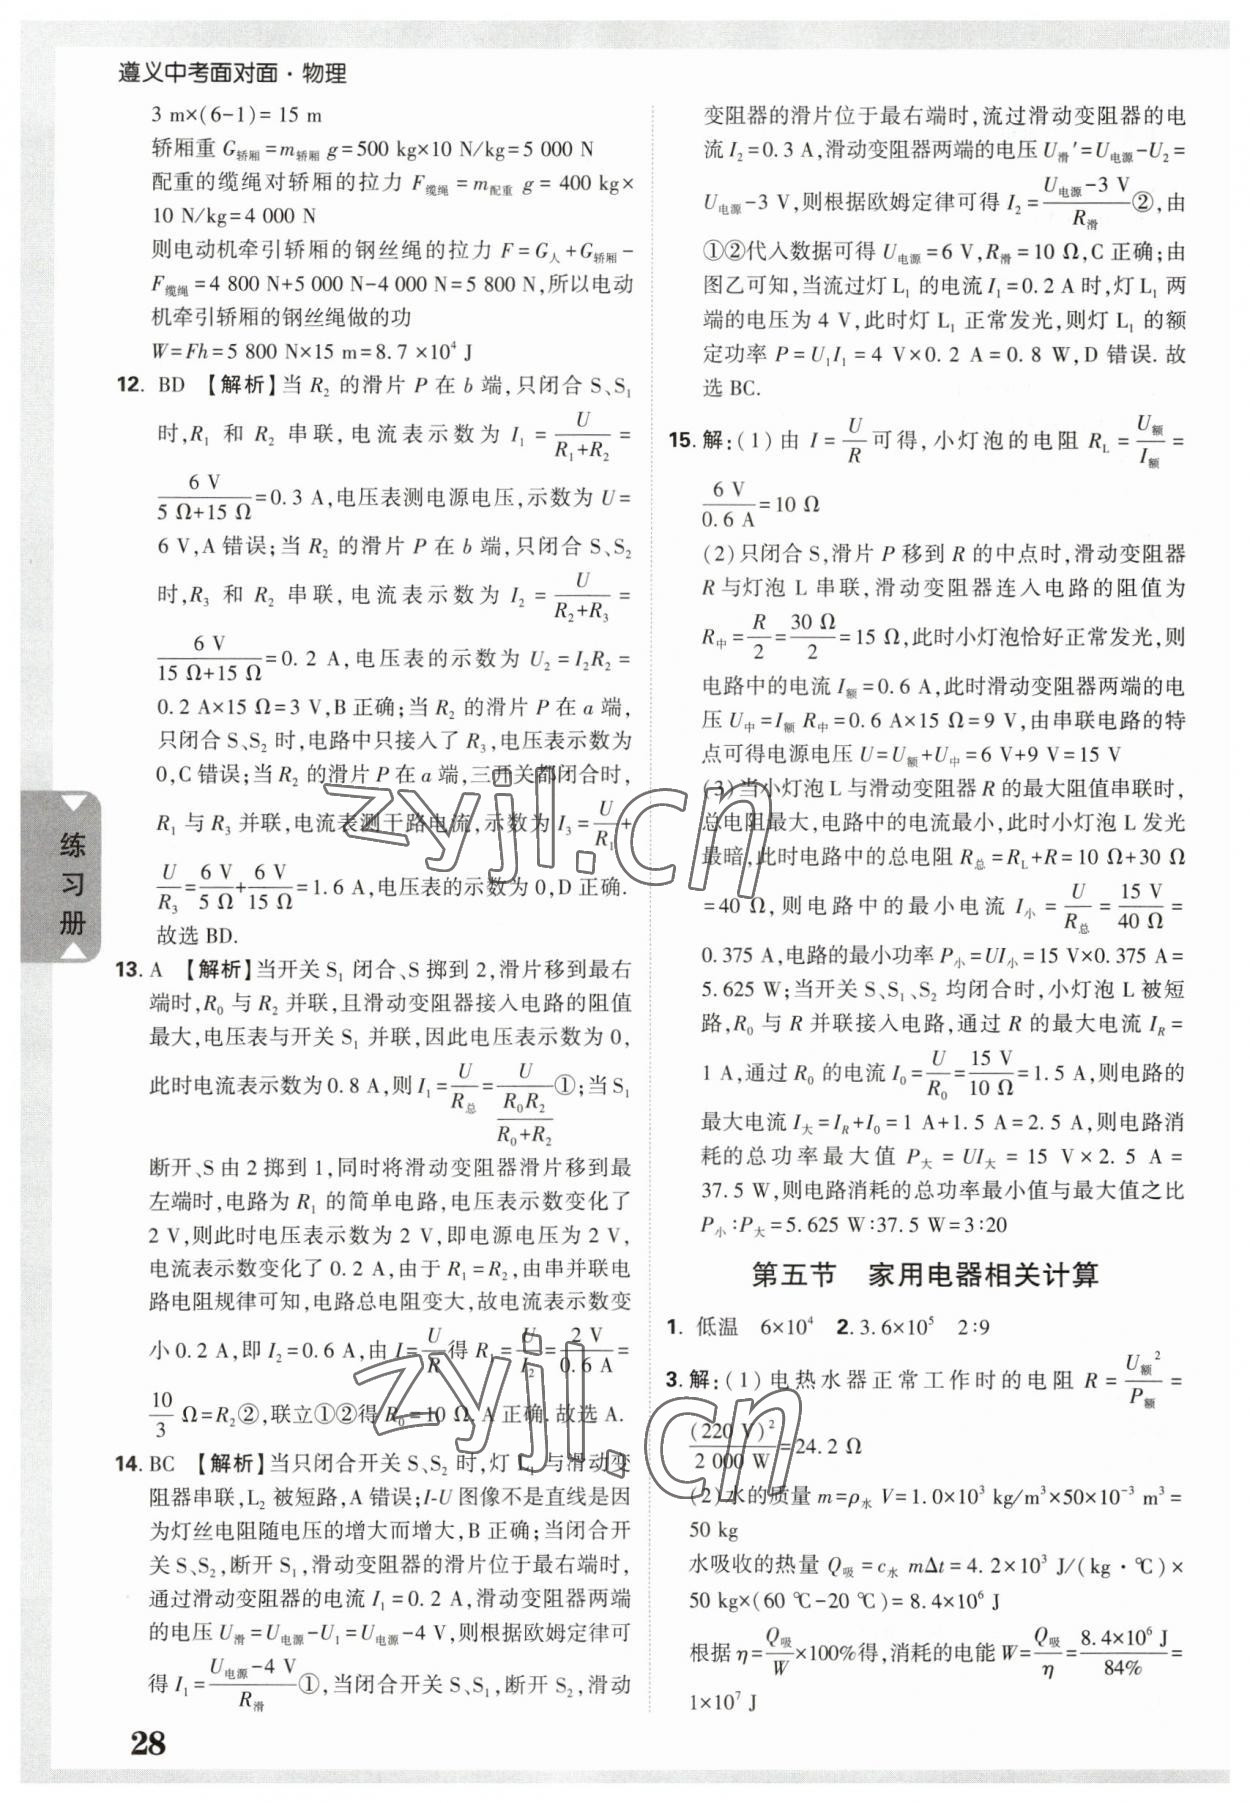 遵义中考面对面·物理
3 m×(6-1)= 15 m
轿厢重 G轿厢 =m轿厢 g=500 kg×10 N/kg=5 000 N
配重的缆绳对轿厢的拉力 F缆绳 =m配重 g = 400 kg×
10 N/kg=4 000 N
则电动机牵引轿厢的钢丝绳的拉力 F=G人+G轿厢-
F缆绳=4 800 N+5 000 N-4 000 N=5 800 N,所以电动
机牵引轿厢的钢丝绳做的功
W=Fh=5 800 N×15 m=8.7 ×10⁴ J
12. BD 【解析】当 R₂ 的滑片 P 在 b 端,只闭合 S、S₁
时,R₁ 和 R₂ 串联,电流表示数为 I₁ = U/(R₁+R₂) =
6 V/(5 Ω+15 Ω)=0.3 A,电压表测电源电压,示数为 U=
6 V,A 错误;当 R₂ 的滑片 P 在 b 端,只闭合 S、S₂
时,R₃ 和 R₂ 串联,电流表示数为 I₂ = U/(R₂+R₃) =
6 V/(15 Ω+15 Ω)=0.2 A,电压表的示数为 U₂=I₂R₂=
0.2 A×15 Ω=3 V,B 正确;当 R₂ 的滑片 P 在 a 端,
只闭合 S、S₂ 时,电路中只接入了 R₃,电压表示数为
0,C 错误;当 R₂ 的滑片 P 在 a 端,三开关都闭合时,
R₁ 与 R₃ 并联,电流表测干路电流,示数为 I₃=U/R₁+
U/R₃=6 V/5 Ω+6 V/15 Ω=1.6 A,电压表的示数为 0,D 正确.
故选 BD.
13. A 【解析】当开关 S₁ 闭合、S 掷到 2,滑片移到最右
端时,R₀ 与 R₂ 并联,且滑动变阻器接入电路的阻值
最大,电压表与开关 S₁ 并联,因此电压表示数为 0,
此时电流表示数为 0.8 A,则 I₁=U/R总=U/(R₀R₂/(R₀+R₂))①;当 S₁
断开、S 由 2 掷到 1,同时将滑动变阻器滑片移到最
左端时,电路为 R₁ 的简单电路,电压表示数变化了
2 V,则此时电压表示数为 2 V,即电源电压为 2 V,
电流表示数变化了 0.2 A,由于 R₁=R₂,由串并联电
路电阻规律可知,电路总电阻变大,故电流表示数变
小 0.2 A,即 I₂=0.6 A,由 I=U/R得 R₁=U/I₂=2 V/0.6 A=
10/3 Ω=R₂②,联立①②得 R₀=10 Ω.A 正确.故选 A.
14. BC 【解析】当只闭合开关 S、S₂ 时,灯 L₁ 与滑动变
阻器串联,L₂ 被短路,A 错误;I-U 图像不是直线是因
为灯丝电阻随电压的增大而增大,B 正确;当闭合开
关 S、S₂,断开 S₁,滑动变阻器的滑片位于最右端时,
通过滑动变阻器的电流 I₁=0.2 A,滑动变阻器两端
的电压 U滑=U电源-U₁=U电源-4 V,则根据欧姆定律可
得 I₁=(U电源-4 V)/R滑①,当闭合开关 S、S₁,断开 S₂,滑动
变阻器的滑片位于最右端时,流过滑动变阻器的电
流 I₂=0.3 A,滑动变阻器两端的电压 U滑′=U电源-U₂=
U电源-3 V,则根据欧姆定律可得 I₂=(U电源-3 V)/R滑②,由
①②代入数据可得 U电源=6 V,R滑=10 Ω,C 正确;由
图乙可知,当流过灯 L₁ 的电流 I₁=0.2 A 时,灯 L₁ 两
端的电压为 4 V,此时灯 L₁ 正常发光,则灯 L₁ 的额
定功率 P=U₁I₁=4 V×0.2 A=0.8 W,D 错误.故
选 BC.
15. 解:(1)由 I=U/R可得,小灯泡的电阻 RL=U额/I额=
6 V/0.6 A=10 Ω
(2)只闭合 S,滑片 P 移到 R 的中点时,滑动变阻器
R 与灯泡 L 串联,滑动变阻器连入电路的阻值为
R中=R/2=30 Ω/2=15 Ω,此时小灯泡恰好正常发光,则
电路中的电流 I额=0.6 A,此时滑动变阻器两端的电
压 U中=I额 R中=0.6 A×15 Ω=9 V,由串联电路的特
点可得电源电压 U=U额+U中=6 V+9 V=15 V
(3)当小灯泡 L 与滑动变阻器 R 的最大阻值串联时,
总电阻最大,电路中的电流最小,此时小灯泡 L 发光
最暗,此时电路中的总电阻 R总=RL+R=10 Ω+30 Ω
=40 Ω,则电路中的最小电流 I小=U/R总=15 V/40 Ω=
0.375 A,电路的最小功率 P小=UI小=15 V×0.375 A=
5.625 W;当开关 S、S₁、S₂ 均闭合时,小灯泡 L 被短
路,R₀ 与 R 并联接入电路,通过 R 的最大电流 IR=
1 A,通过 R₀ 的电流 I₀=U/R₀=15 V/10 Ω=1.5 A,则电路的
最大电流 I大=IR+I₀=1 A+1.5 A=2.5 A,则电路消
耗的总功率最大值 P大 = UI大 = 15 V×2.5 A=
37.5 W,则电路消耗的总功率最小值与最大值之比
P小∶P大=5.625 W∶37.5 W=3∶20
第五节 家用电器相关计算
1. 低温 6×10⁴ 2. 3.6×10⁵ 2∶9
3. 解:(1)电热水器正常工作时的电阻 R=U额²/P额=
(220 V)²/2 000 W=24.2 Ω
(2)水的质量 m=ρ水 V=1.0×10³ kg/m³×50×10⁻³ m³=
50 kg
水吸收的热量 Q吸=c水 mΔt=4.2×10³ J/(kg·℃)×
50 kg×(60 ℃-20 ℃)=8.4×10⁶ J
根据 η=Q吸/W×100%得,消耗的电能 W=Q吸/η=8.4×10⁶ J/84%=
1×10⁷ J
练习册
28
zyjl.cn
zyjl.cn